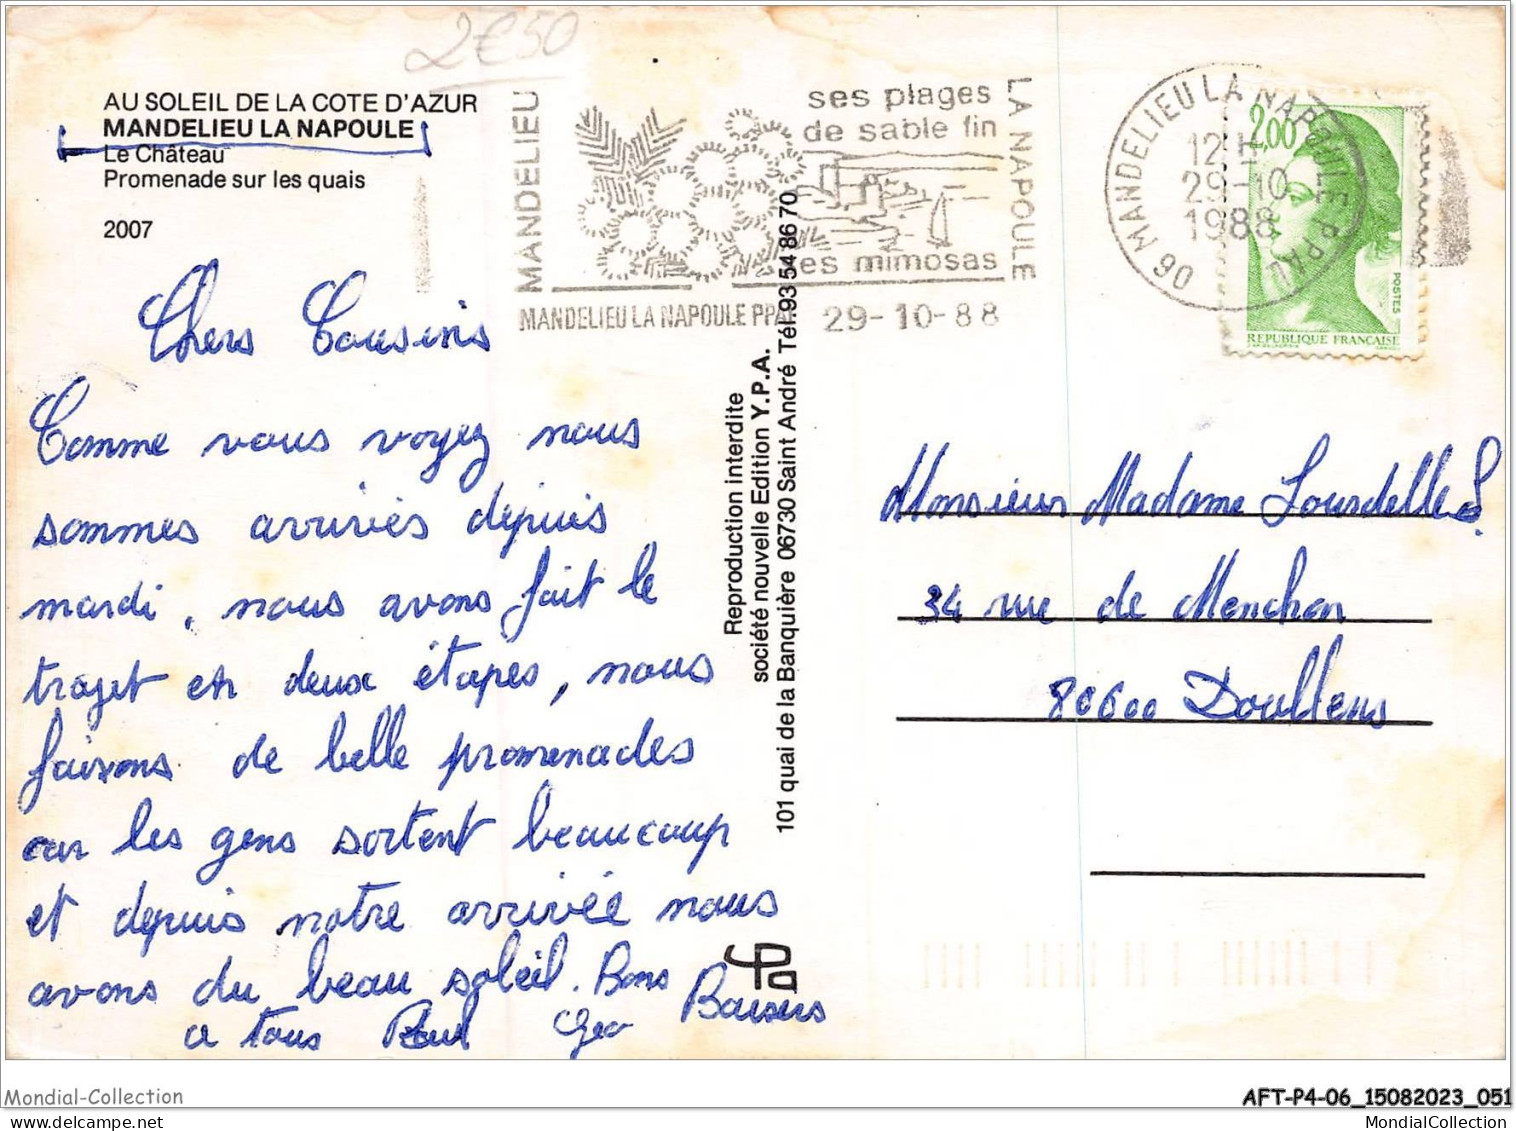 2€50
AU SOLEIL DE LA COTE D'AZUR
MANDELIEU LA NAPOULE
Le Château
Promenade sur les quais
2007
MANDELIEU
ses plages
de sable fin
ses mimosas
LA NAPOULE
MANDELIEU LA NAPOULE PPAL 29-10-88
06 MANDELIEU LA NAPOULE PPAL
12 H
29-10
1988
2,00
POSTES
REPUBLIQUE FRANÇAISE
Chers Cousins
Comme vous voyez nous
sommes arrivés depuis
mardi, nous avons fait le
trajet en deux étapes, nous
faisons de belle promenades
car les gens sortent beaucoup
et depuis notre arrivée nous
avons du beau soleil. Bons Baisers
a tous Paul Geo
Reproduction interdite
société nouvelle Edition Y.P.A.
101 quai de la Banquière 06730 Saint André Tél. 93 54 86 70
Monsieur Madame Lourdelle S.
34 rue de Menchon
80600 Doullens
Mondial-Collection
AFT-P4-06_15082023_051
MondialCollection